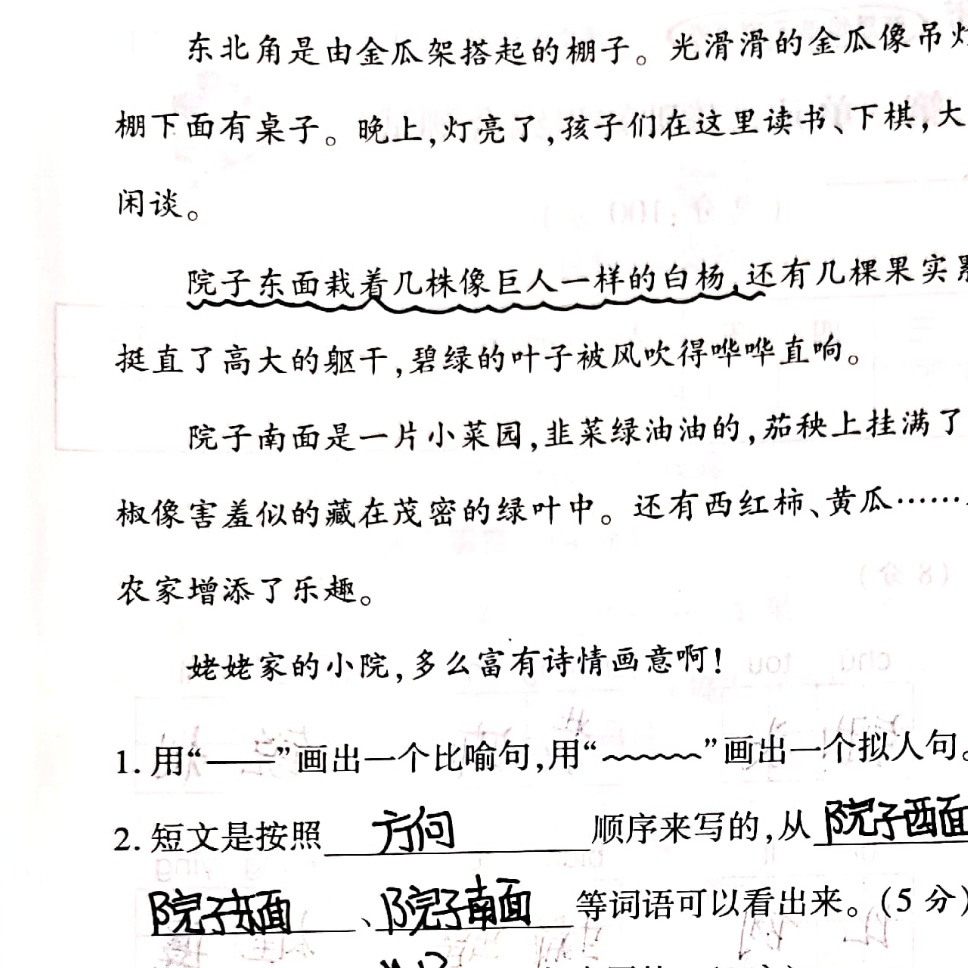 东北角是由金瓜架搭起的棚子。光滑滑的金瓜像吊灯
棚下面有桌子。晚上,灯亮了,孩子们在这里读书、下棋,大
闲谈。
院子东面栽着几株像巨人一样的白杨,还有几棵果实累
挺直了高大的躯干,碧绿的叶子被风吹得哗哗直响。
院子南面是一片小菜园,韭菜绿油油的,茄秧上挂满了
椒像害羞似的藏在茂密的绿叶中。还有西红柿、黄瓜……
农家增添了乐趣。
姥姥家的小院,多么富有诗情画意啊!
1. 用“——”画出一个比喻句,用“﹏﹏”画出一个拟人句。
2. 短文是按照 方向 顺序来写的,从 院子西面
院子东面、院子南面 等词语可以看出来。(5 分)